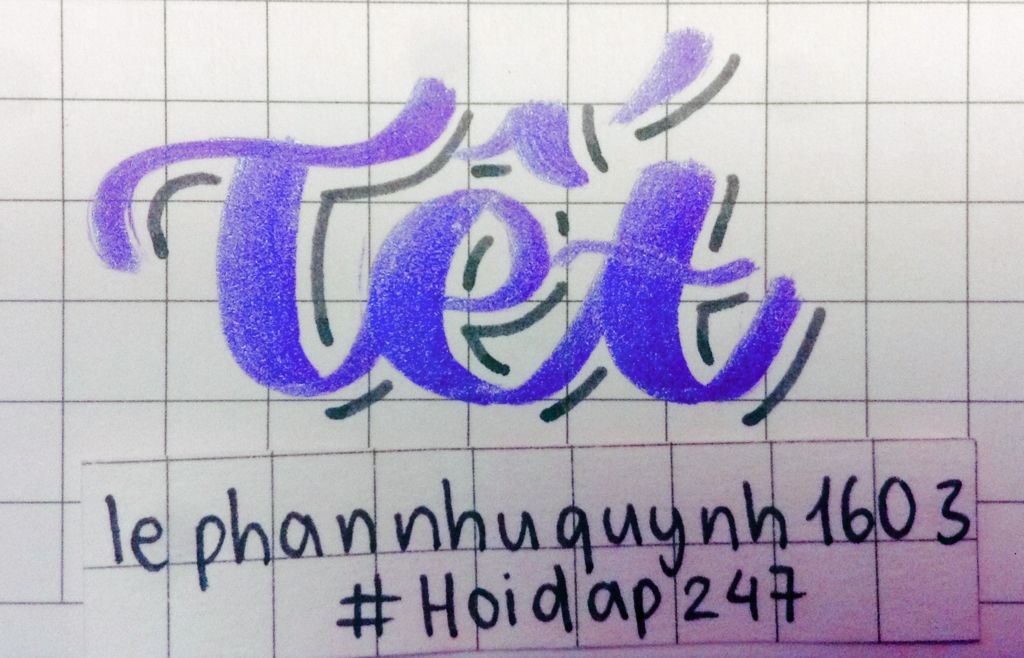 Tết
lephannhuquynh1603
#Hoidap247